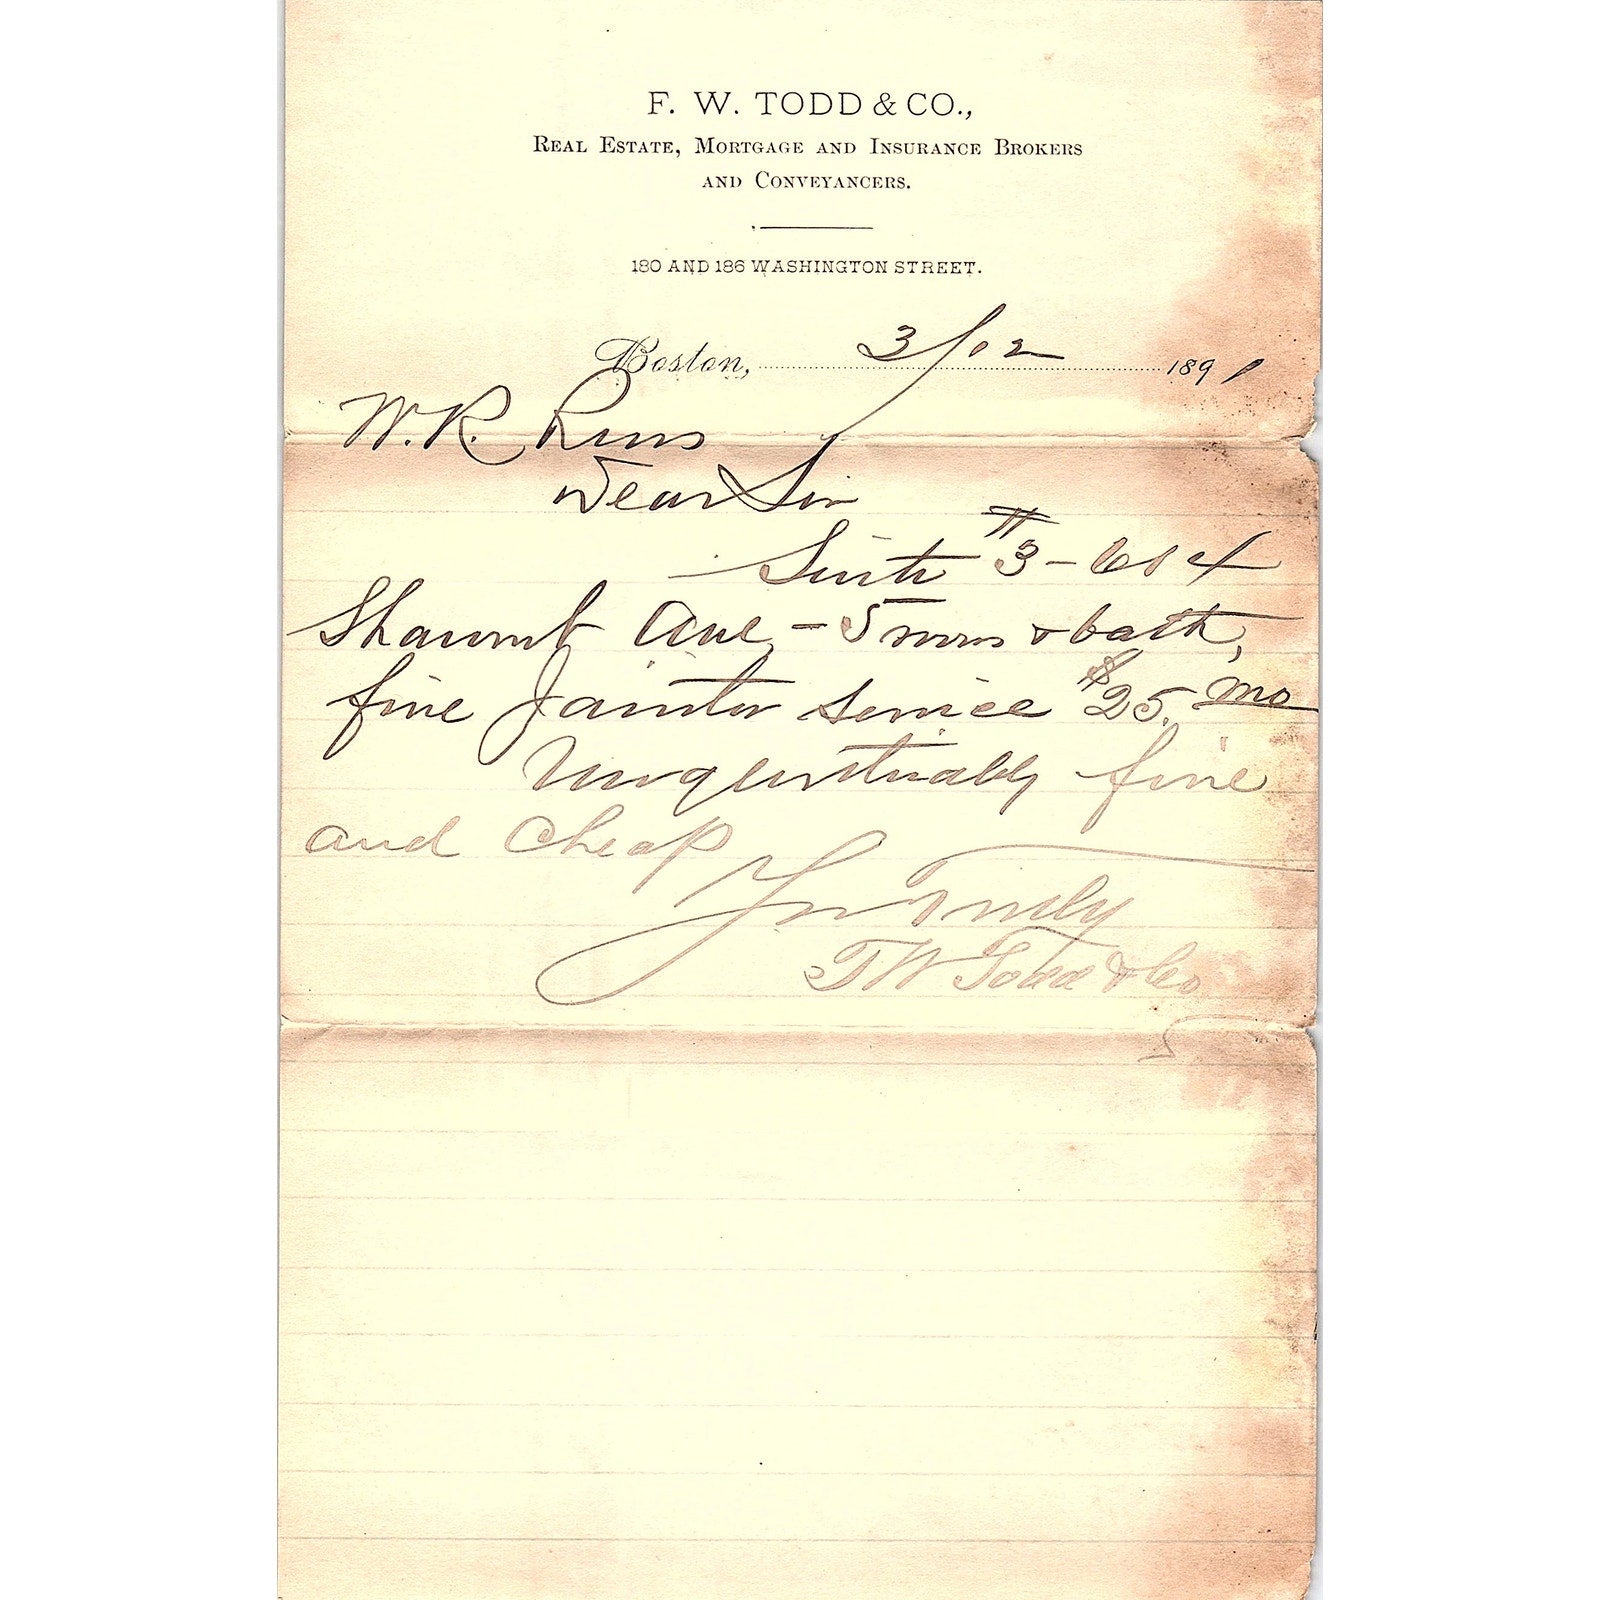 F. W. TODD & CO.,
REAL ESTATE, MORTGAGE AND INSURANCE BROKERS
AND CONVEYANCERS.
180 AND 186 WASHINGTON STREET.
Boston, 3/02 1891
W. R.
Dear Sir
Suite #3 - 614
Shawmut Ave, - 5 rooms & bath,
fine Janitor service $25. mo
Unquestionably fine
and cheap
Yrs Truly
F W Todd & Co